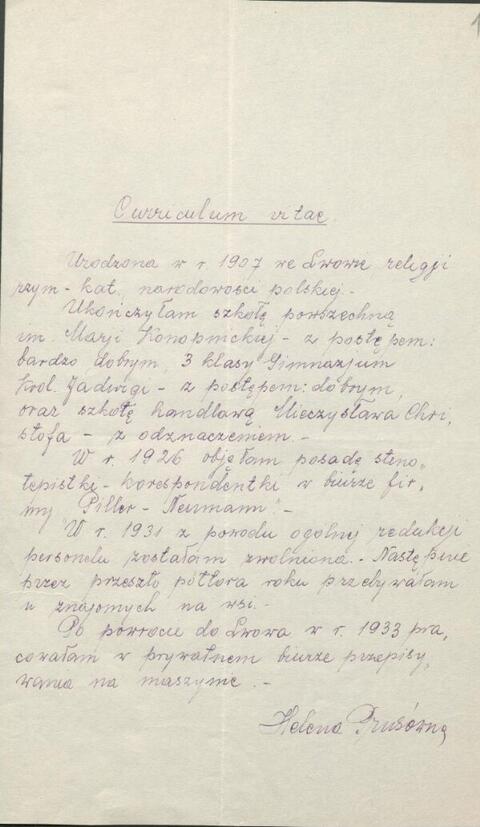 1
Curriculum vitae
Urodzona w r. 1907 we Lwowie religji
rzym-kat, narodowości polskiej.-
Ukończyłam szkołę powszechną
im. Marji Konopnickiej - z postępem:
bardzo dobrym, 3 klasy Gimnazjum
Król. Jadwigi - z postępem: dobrym,
oraz szkołę handlową Mieczysława Chri,
stofa - z odznaczeniem.-
W r. 1926 objęłam posadę steno,
typistki-korespondentki w biurze fir,
my "Piller-Neumann".-
W r. 1931 z powodu ogólnej redukcji
personelu zostałam zwolniona.- Następnie
przez przeszło półtora roku przebywałam
u znajomych na wsi.-
Po powrocie do Lwowa w r. 1933 pra,
cowałam w prywatnem biurze przepisy,
wania na maszynie.-
Helena Prusówna